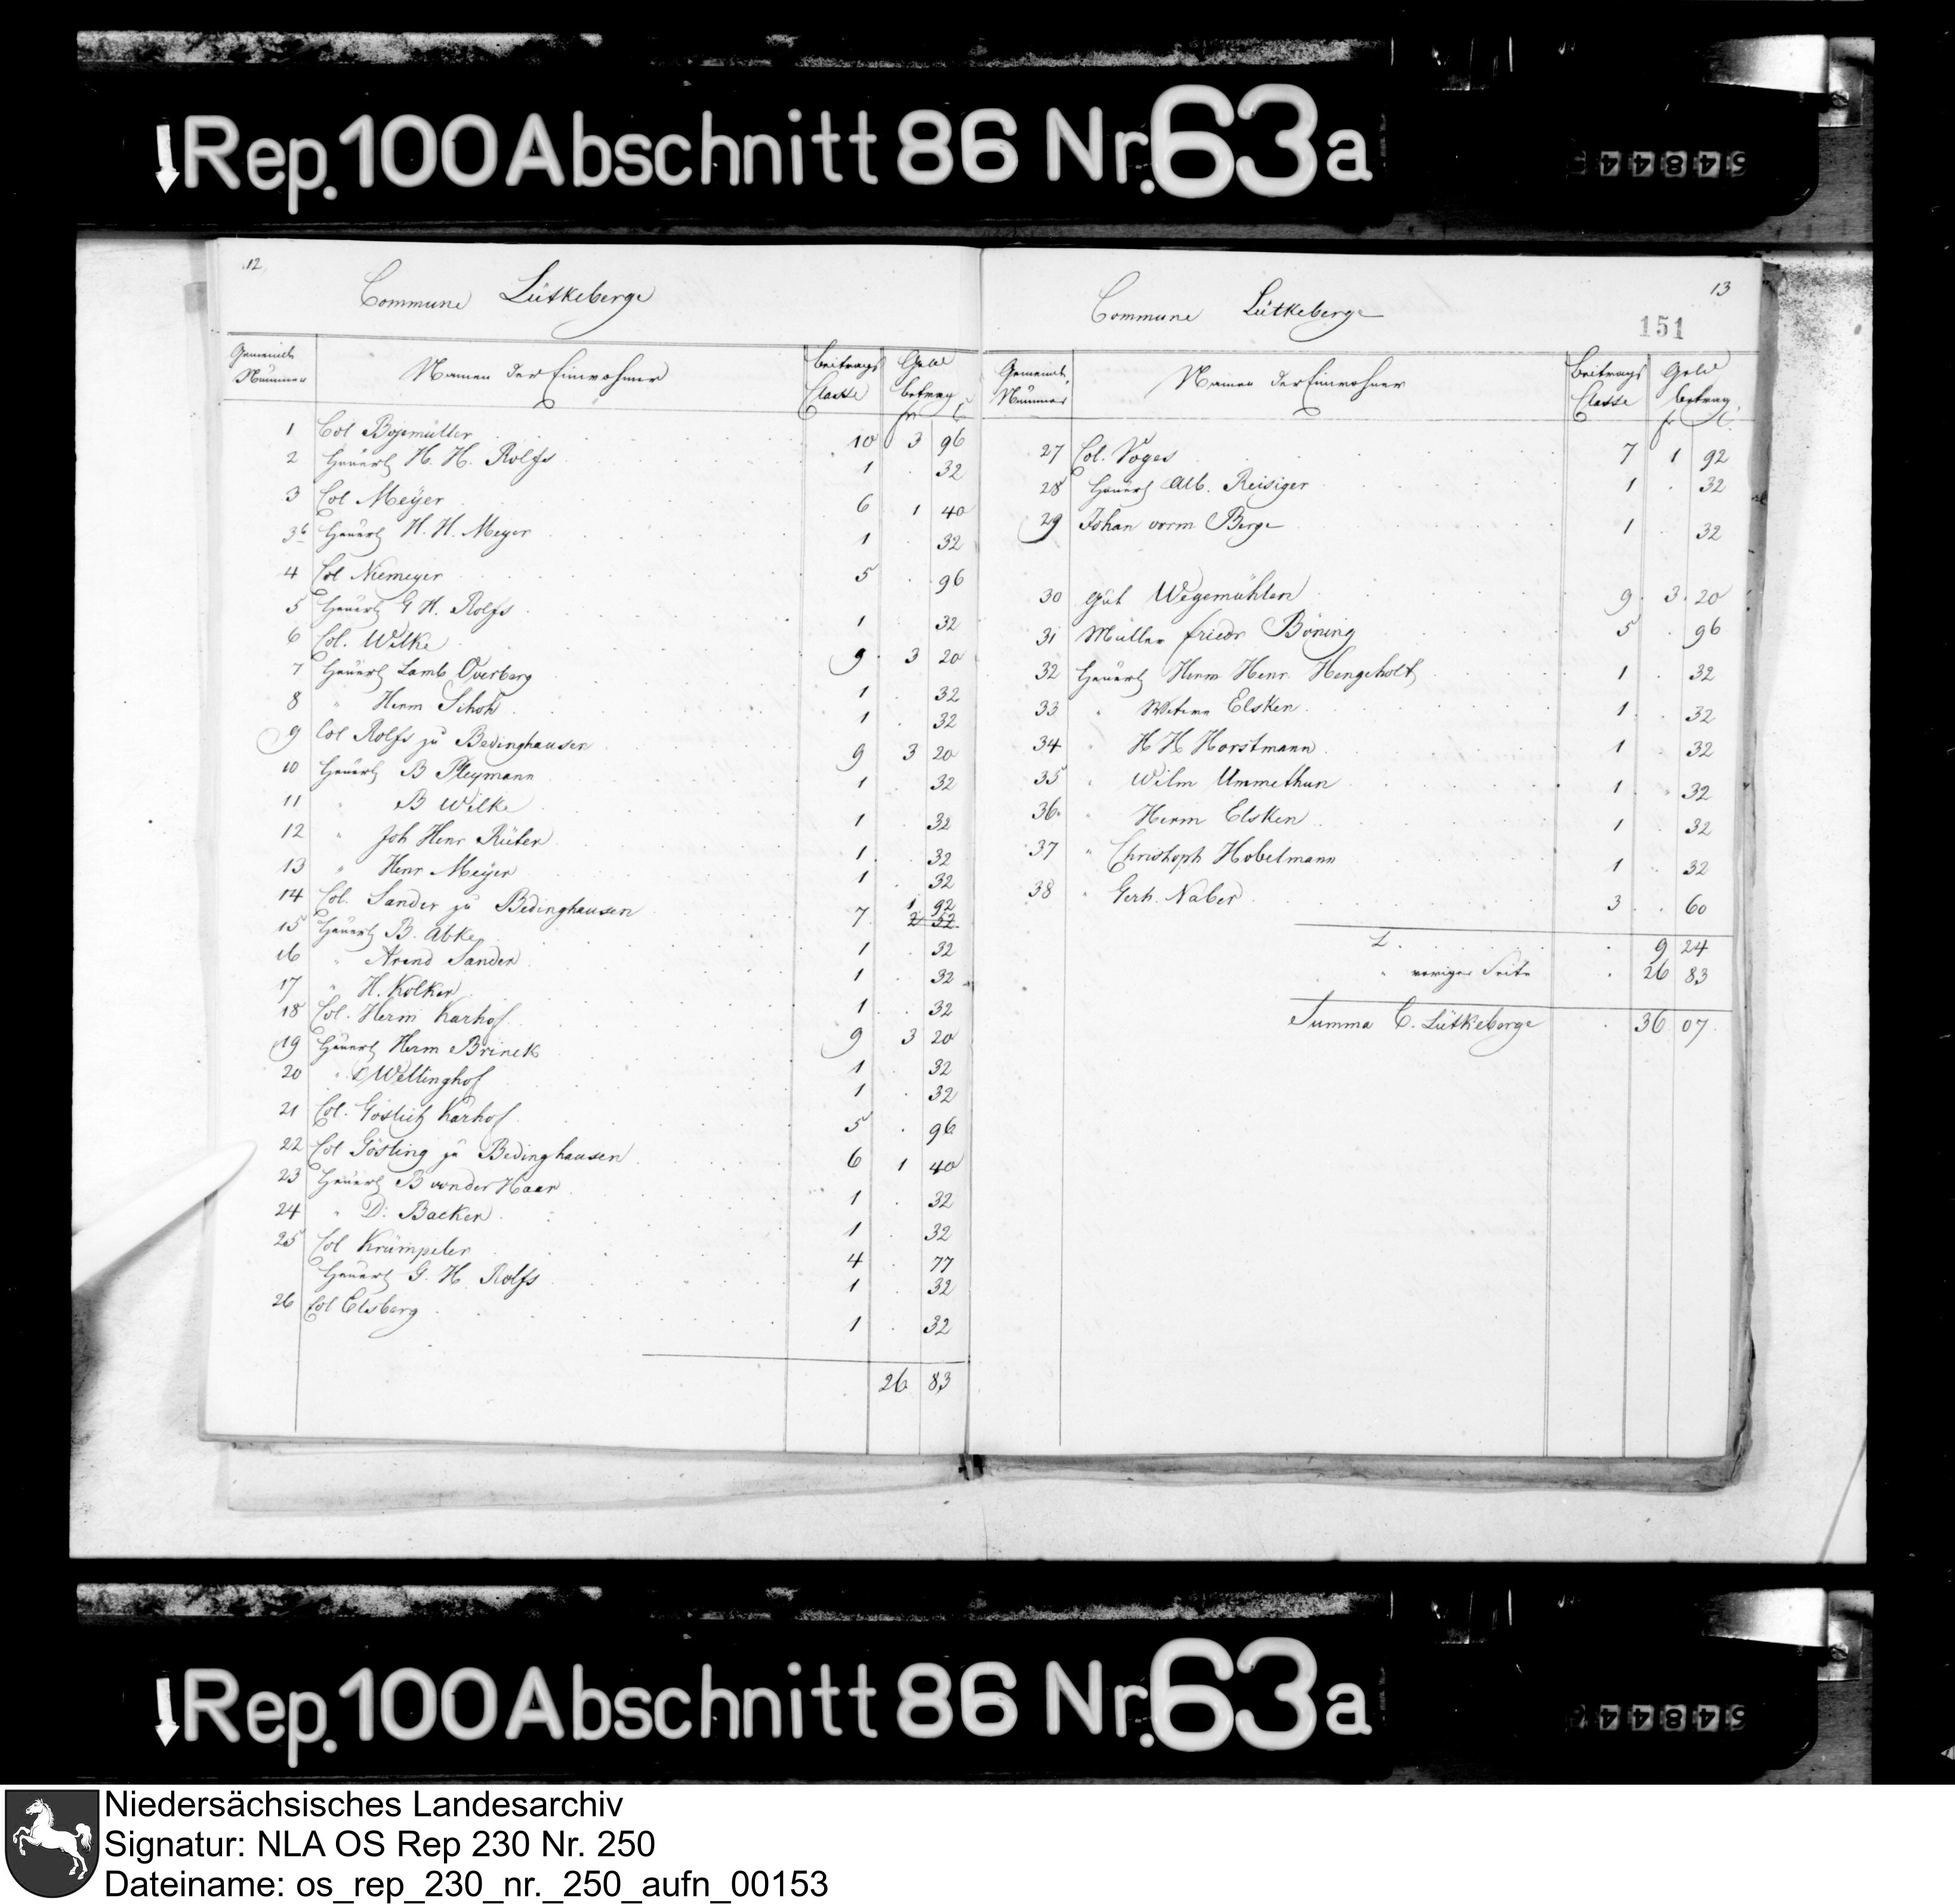 Rep. 100 Abschnitt 86 Nr. 63a
12
Commune Lütkeberge
Gemeinde Nummer Namen der Einwohner Beitrags Classe Geld betrag
fr c
1 Col Bojemüller 10 3 96
2 Heuerl H. H. Rolfs 1 . 32
3 Col Meÿer 6 1 40
3b Heuerl H. H. Meyer 1 . 32
4 Col Niemeyer 5 . 96
5 Heuerl G H. Rolfs 1 . 32
6 Col. Wilke 9 3 20
7 Heuerl Lamb Overberg 1 . 32
8 " Herm Schoh 1 . 32
9 Col Rolfs zu Bedinghausen 9 3 20
10 Heuerl B Pleymann 1 . 32
11 " B Wilke 1 . 32
12 " Joh Henr Rüter 1 . 32
13 " Henr Meÿer 1 . 32
14 Col. Sander zu Bedinghausen 7 1 92
2 52
15 Heuerl B. Abke 1 . 32
16 " Arend Sander 1 . 32
17 " H. Kolker 1 . 32
18 Col. Herm Karhof 9 3 20
19 Heuerl Herm Brinck 1 32
20 " Wellinghof 1 . 32
21 Col. Göslich Karhof 5 . 96
22 Col Gösling zu Bedinghausen 6 1 40
23 Heuerl B von der Haar 1 . 32
24 " D: Backer 1 . 32
25 Col Krümpeler 4 . 77
Heuerl G. H. Rolfs 1 . 32
26 Col Elsberg 1 . 32
26 83
13
151
Commune Lütkeberge
Gemeinde Nummer Namen der Einwohner Beitrags Classe Geld betrag
fr c
27 Col. Voges 7 1 92
28 Heuerl Alb. Reisiger 1 . 32
29 Johan vorm Berge 1 . 32
30 Gut Wegemühlen 9 3 20
31 Müller friedr Böning 5 . 96
32 Heuerl Herm Henr. Hengeholt 1 . 32
33 " Elsken 1 . 32
34 " H H Horstmann 1 . 32
35 " Wilm Ummethun 1 . 32
36 " Herm Elsken 1 . 32
37 " Christoph Hobelmann 1 . 32
38 " Gerh. Naber 3 . 60
9 24
" voriger Seite 26 83
Summa C. Lütkeberge 36 07
Rep. 100 Abschnitt 86 Nr. 63a
Niedersächsisches Landesarchiv
Signatur: NLA OS Rep 230 Nr. 250
Dateiname: os_rep_230_nr._250_aufn_00153